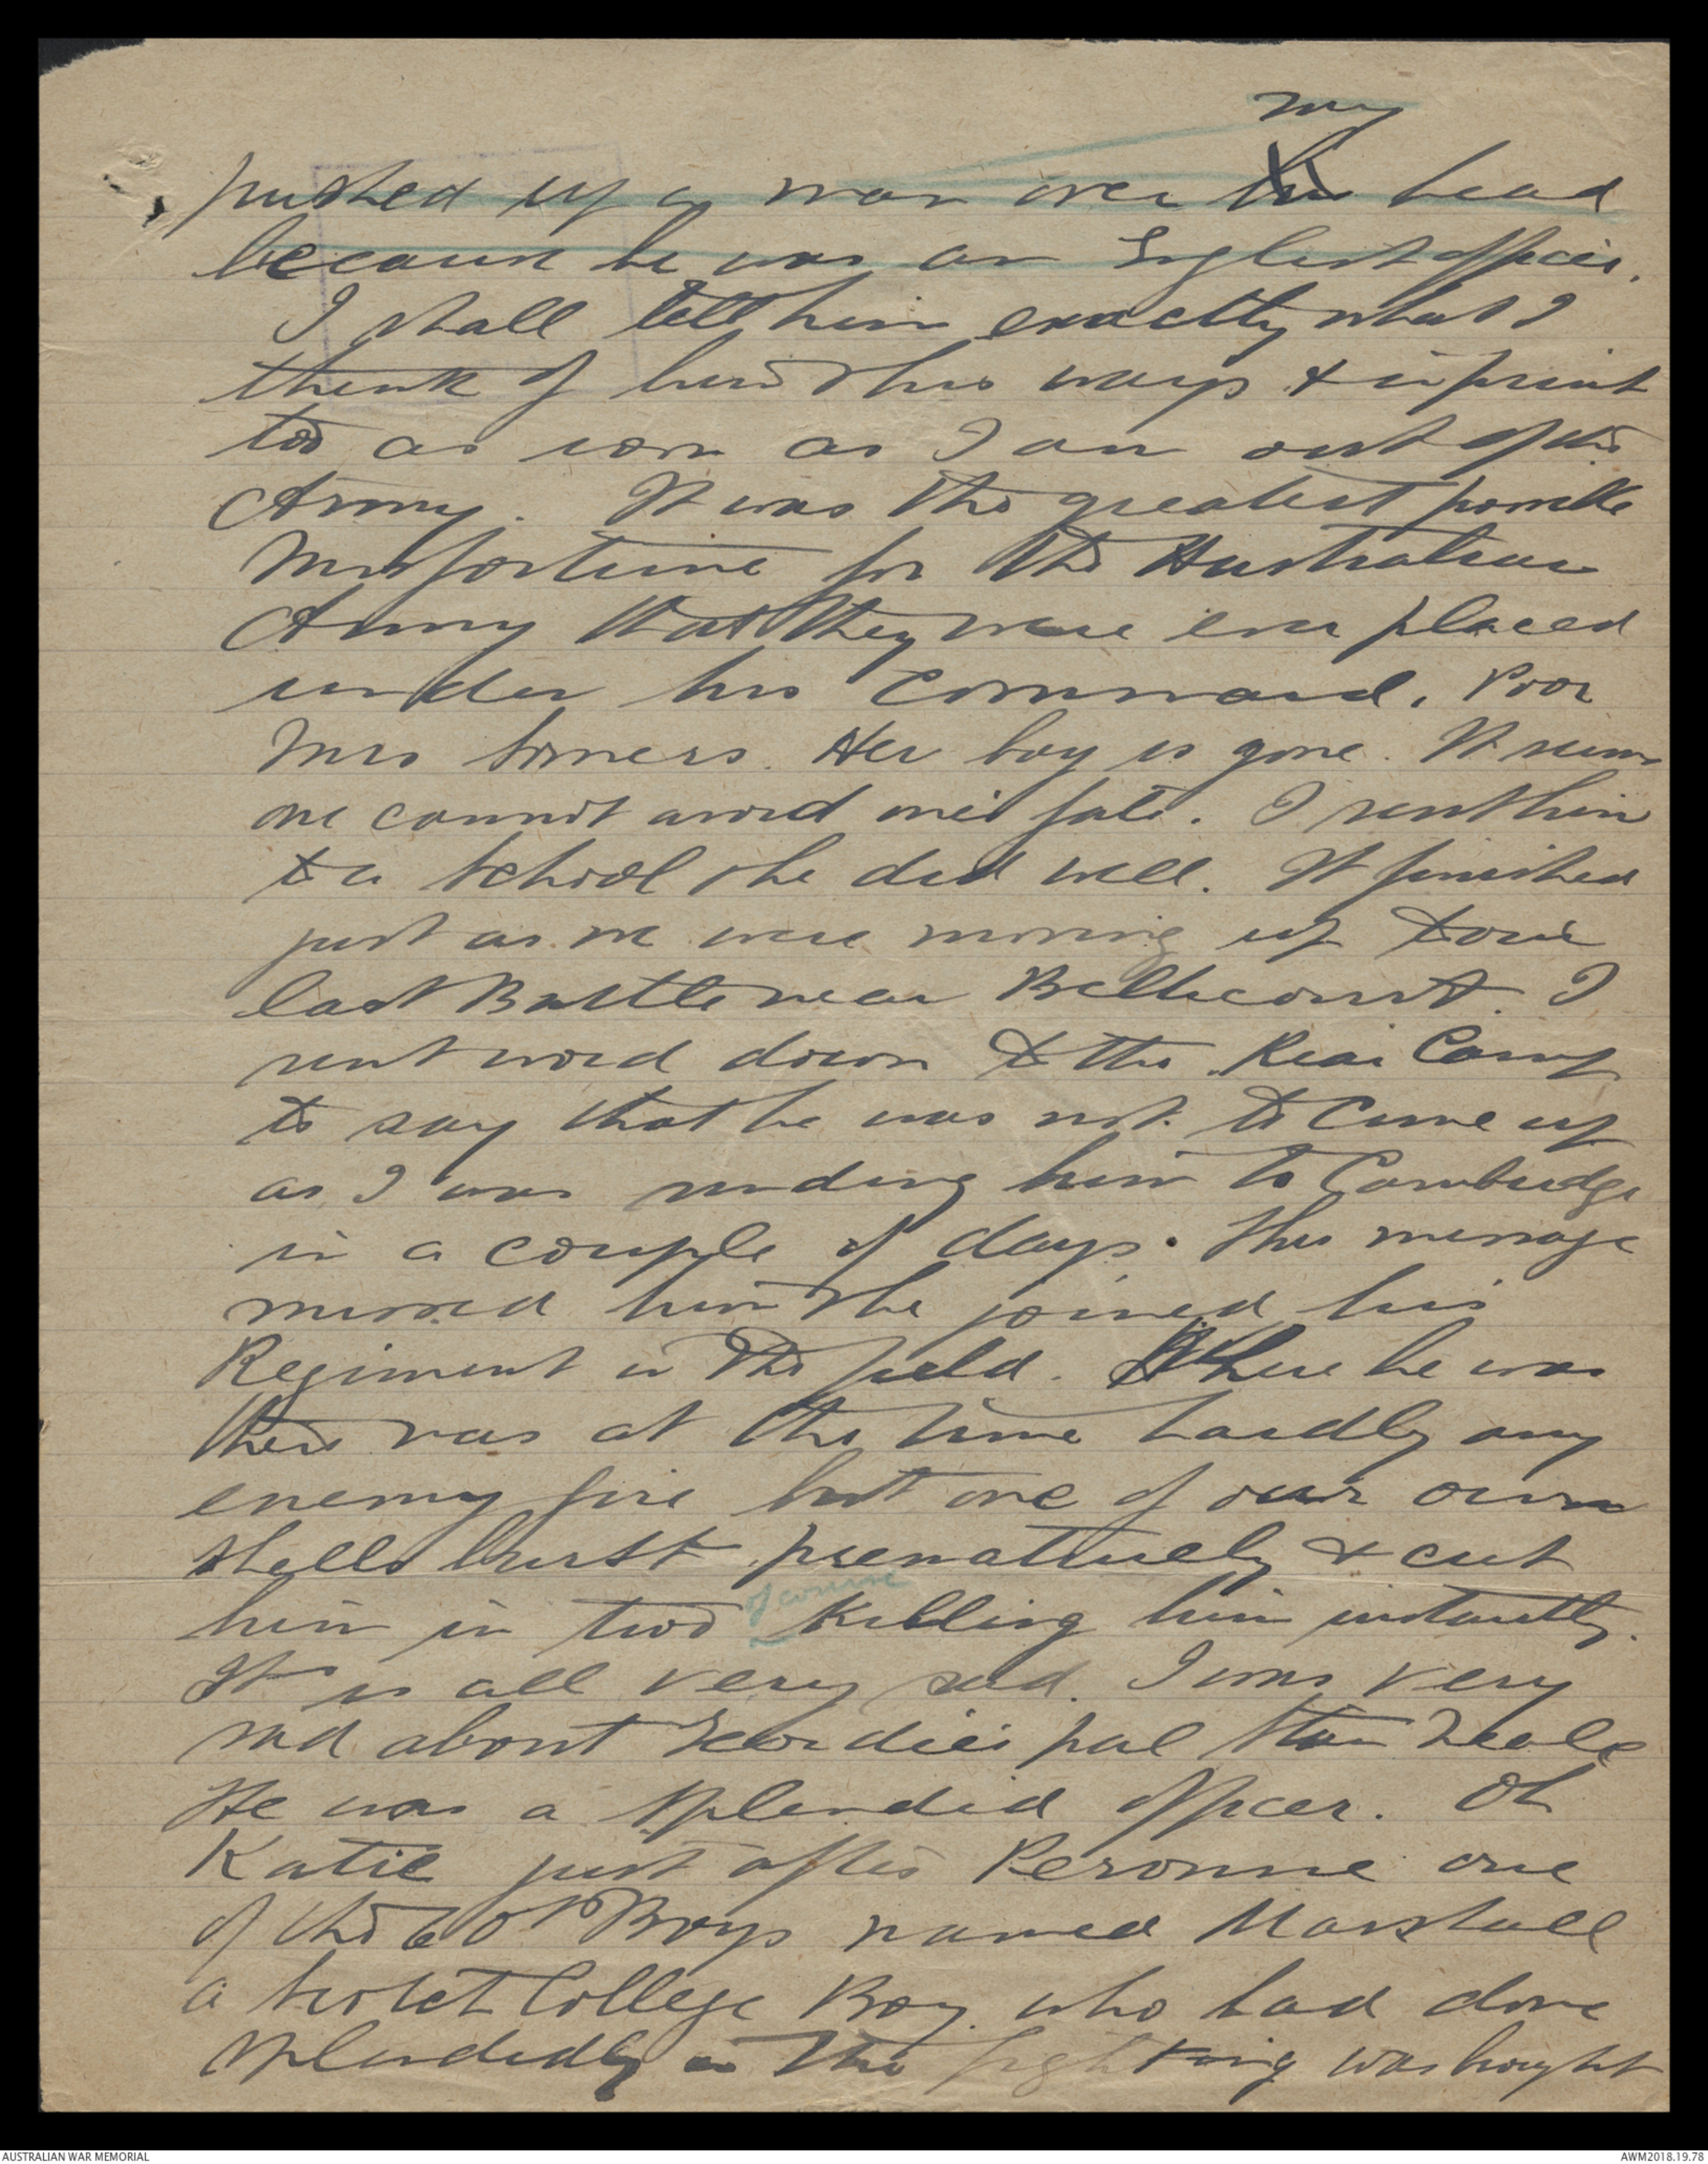 my
pushed up a man over his head
because he was an English officer.
I shall tell him exactly what I
think of him & his ways & in print
too as soon as I am out of the
Army. It was the greatest possible
Misfortune for the Australian
Army that they were ever placed
under his Command. Poor
Mrs Somers. Her boy is gone. It seems
one cannot avoid one's fate. I sent him
to a School & he did well. It finished
just as we were moving up to our
last Battle near Bellicourt. I
sent word down to the Rear Camp
to say that he was not to Come up
as I was sending him to Cambridge
in a couple of days. This message
missed him & he joined his
Regiment in the field. Where he was
there was at the time hardly any
enemy fire but one of our own
shells burst prematurely & cut
of course
him in two killing him instantly.
It is all very sad. I was very
sad about Geordie's pal Stan Neale
He was a splendid officer. Oh
Katie just after Peronne one
of the 60th Boys named Marshall
a Scotch College Boy who had done
splendidly in the fighting was bought
AUSTRALIAN WAR MEMORIAL
AWM2018.19.78